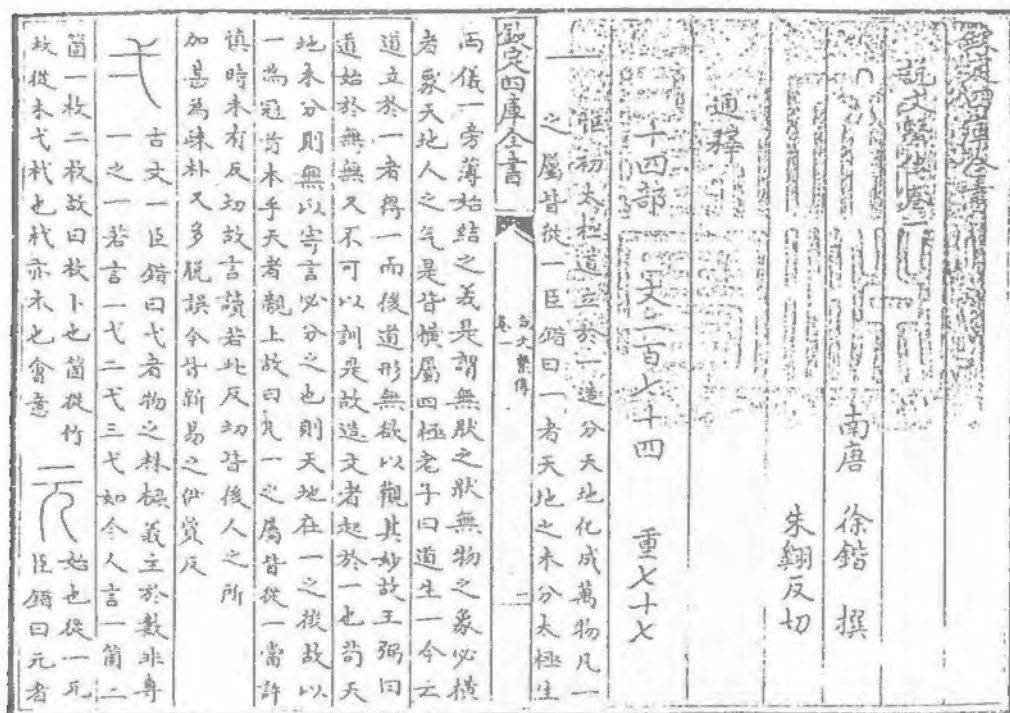 欽定四庫全書
說文繫傳卷一
南唐 徐鍇 撰
朱翺反切
通釋
十四部 文二百七十四 重七十七
一
惟初太極道立於一造分天地化成萬物凡一
之屬皆從一臣鍇曰一者天地之未分太極生
兩儀一旁薄始結之義是謂無狀之狀無物之象必橫
者象天地人之气是皆橫屬四極老子曰道生一今云
道立於一者得一而後道形無欲以觀其妙故王弼曰
道始於無無又不可以訓是故造文者起於一也苟天
地未分則無以寄言必分之也則天地在一之後故以
一為冠首本乎天者親上故曰凡一之屬皆從一當許
慎時未有反切故言讀若此反切皆後人之所
加甚為疎朴又多脫誤今皆新易之伊質反
弌
古文一臣鍇曰弋者物之株橛義主於數非專
一之一若言一弋二弋三弋如今人言一箇二
箇一枚二枚故曰枚卜也箇從竹
枚從木弋杙也杙亦木也會意
元
始也從一兀
臣鍇曰元者
欽定四庫全書
說文繫傳
卷一